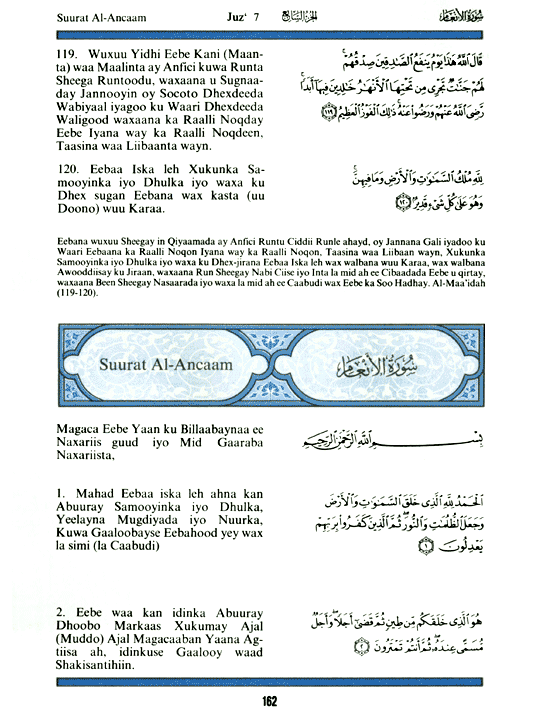 Suurat Al-Ancaam Juz‘ 7 الجزء السابع سورة الأنعام
119. Wuxuu Yidhi Eebe Kani (Maan-
ta) waa Maalinta ay Anfici kuwa Runta
Sheega Runtoodu, waxaana u Sugnaa-
day Jannooyin oy Socoto Dhexdeeda
Wabiyaal iyagoo ku Waari Dhexdeeda
Waligood waxaana ka Raalli Noqday
Eebe Iyana way ka Raalli Noqdeen,
Taasina waa Liibaanta wayn.
قَالَ ٱللَّهُ هَٰذَا يَوْمُ يَنفَعُ ٱلصَّٰدِقِينَ صِدْقُهُمْ ۚ
لَهُمْ جَنَّٰتٌ تَجْرِى مِن تَحْتِهَا ٱلْأَنْهَٰرُ خَٰلِدِينَ فِيهَآ أَبَدًا ۚ
رَّضِىَ ٱللَّهُ عَنْهُمْ وَرَضُوا۟ عَنْهُ ۚ ذَٰلِكَ ٱلْفَوْزُ ٱلْعَظِيمُ ١١٩
120. Eebaa Iska leh Xukunka Sa-
mooyinka iyo Dhulka iyo waxa ku
Dhex sugan Eebana wax kasta (uu
Doono) wuu Karaa.
لِلَّهِ مُلْكُ ٱلسَّمَٰوَٰتِ وَٱلْأَرْضِ وَمَا فِيهِنَّ ۚ
وَهُوَ عَلَىٰ كُلِّ شَىْءٍ قَدِيرٌۢ ١٢٠
Eebana wuxuu Sheegay in Qiyaamada ay Anfici Runtu Ciddii Runle ahayd, oy Jannana Gali iyadoo ku
Waari Eebaana ka Raalli Noqon Iyana way ka Raalli Noqon, Taasina waa Liibaan wayn, Xukunka
Samooyinka iyo Dhulka iyo waxa ku Dhex-jirana Eebaa Iska leh wax walbana wuu Karaa, wax walbana
Awooddiisay ku Jiraan, waxaana Run Sheegay Nabi Ciise iyo Inta la mid ah ee Cibaadada Eebe u qirtay,
waxaana Been Sheegay Nasaarada iyo waxa la mid ah ee Caabudi wax Eebe ka Soo Hadhay. Al-Maa’idah
(119-120).
Suurat Al-Ancaam سورة الأنعام
Magaca Eebe Yaan ku Billaabaynaa ee
Naxariis guud iyo Mid Gaaraba
Naxariista,
بِسْمِ ٱللَّهِ ٱلرَّحْمَٰنِ ٱلرَّحِيمِ
1. Mahad Eebaa iska leh ahna kan
Abuuray Samooyinka iyo Dhulka,
Yeelayna Mugdiyada iyo Nuurka,
Kuwa Gaaloobayse Eebahood yey wax
la simi (la Caabudi)
ٱلْحَمْدُ لِلَّهِ ٱلَّذِى خَلَقَ ٱلسَّمَٰوَٰتِ وَٱلْأَرْضَ
وَجَعَلَ ٱلظُّلُمَٰتِ وَٱلنُّورَ ۖ ثُمَّ ٱلَّذِينَ كَفَرُوا۟ بِرَبِّهِمْ
يَعْدِلُونَ ١
2. Eebe waa kan idinka Abuuray
Dhoobo Markaas Xukumay Ajal
(Muddo) Ajal Magacaaban Yaana Ag-
tiisa ah, idinkuse Gaalooy waad
Shakisantihiin.
هُوَ ٱلَّذِى خَلَقَكُم مِّن طِينٍ ثُمَّ قَضَىٰٓ أَجَلًا ۖ وَأَجَلٌ
مُّسَمًّى عِندَهُۥ ۖ ثُمَّ أَنتُمْ تَمْتَرُونَ ٢
162